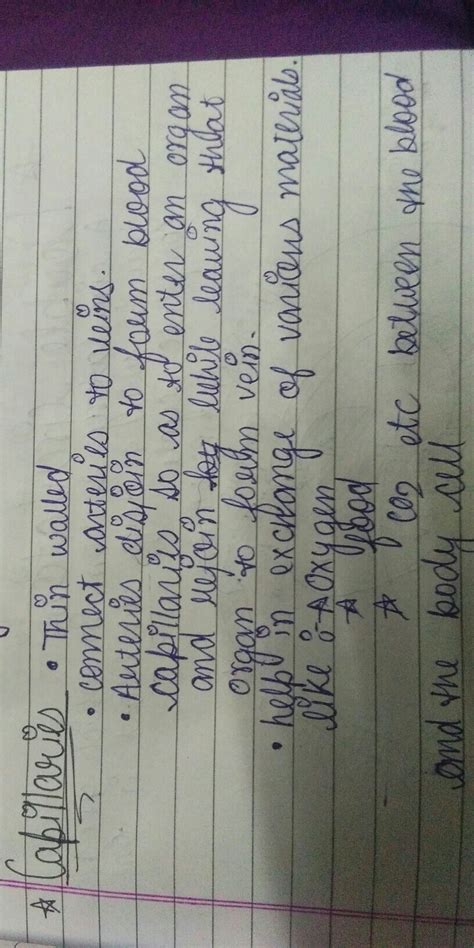 ☆ Capillaries • Thin walled
• connect arteries to veins.
• Arteries disjoin to form blood
capillaries so as to enter an organ
and rejoin while leaving that
organ to form vein.
• help in exchange of various materials.
like :- ☆ Oxygen
☆ food
☆ CO2 etc between the blood
and the body cell